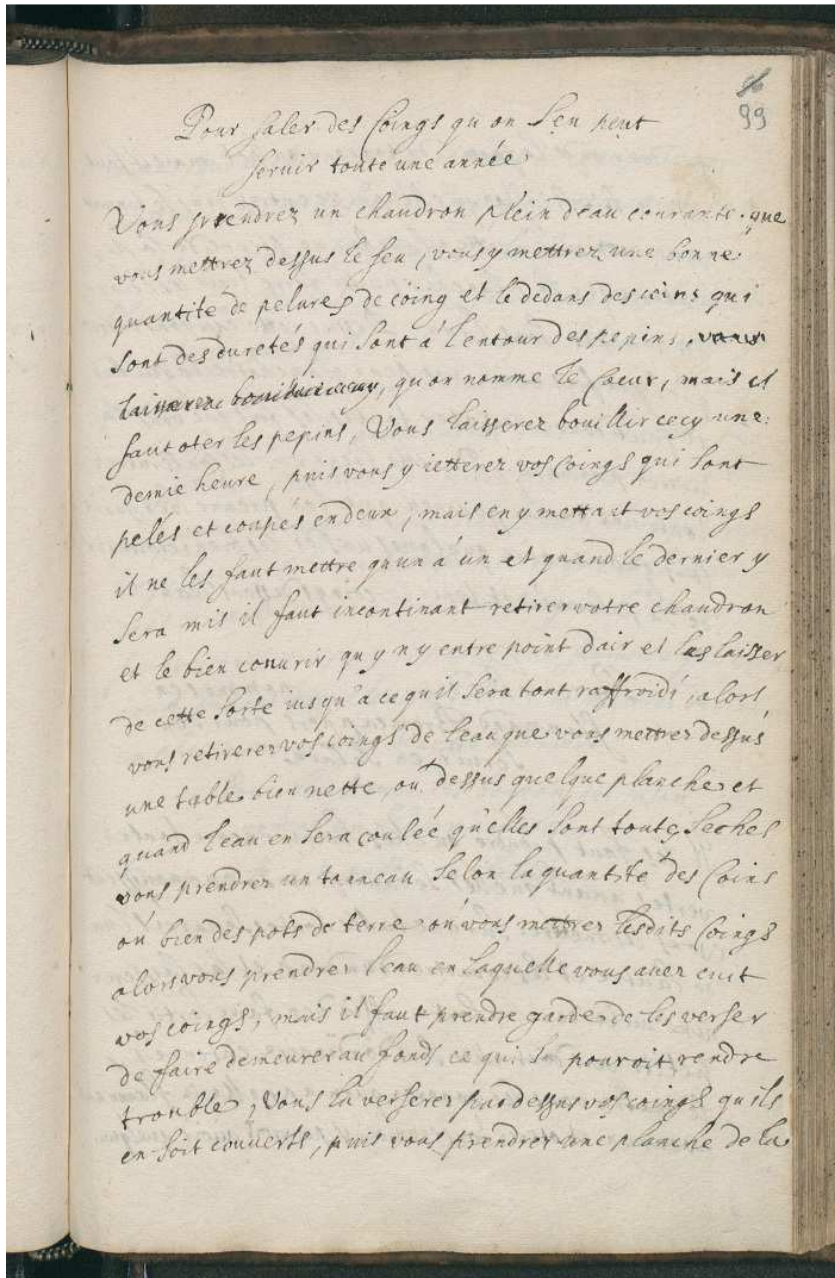 96
99
Pour saler des Coings qu on sen peut
servir toute une année
Vous prendrez un chaudron plein deau courante que
vous mettrez dessus le feu, vous y mettrez une bonne
quantité de pelures de coing et le dedans des coins qui
sont des duretés qui sont á lentour des pepins, vous
laisserez bouillir cecy, qu on nomme le Coeur, mais il
faut oter les pepins, Vous laisserez bouillir cecy une
demie heure, puis vous y ietterez vos Coings qui sont
pelés et coupés en deux, mais en y mettant vos coings
il ne les faut mettre qu un á un et quand le dernier y
sera mis il faut incontinant retirer votre chaudron
et le bien couurir qu y n y entre point dair et les laisser
de cette sorte iusqu'a ce quil sera tout raffroidi, alors
vous retirerez vos coings de leau que vous mettrez dessus
une table bien nette, ou dessus quelque planche et
quand leau en sera coulée quelles sont toutes seches
vous prendrez un tonneau selon la quantité des Coins
ou bien des pots de terre ou vous mettrez lesdits Coings
alors vous prendrez leau en laquelle vous auez cuit
vos coings, mais il faut prendre garde de les verser
de faire demeurer au fonds ce qui la pouroit rendre
trouble, Vous la verserez par dessus vos coings qu ils
en soit couuerts, puis vous prendrez une planche de la